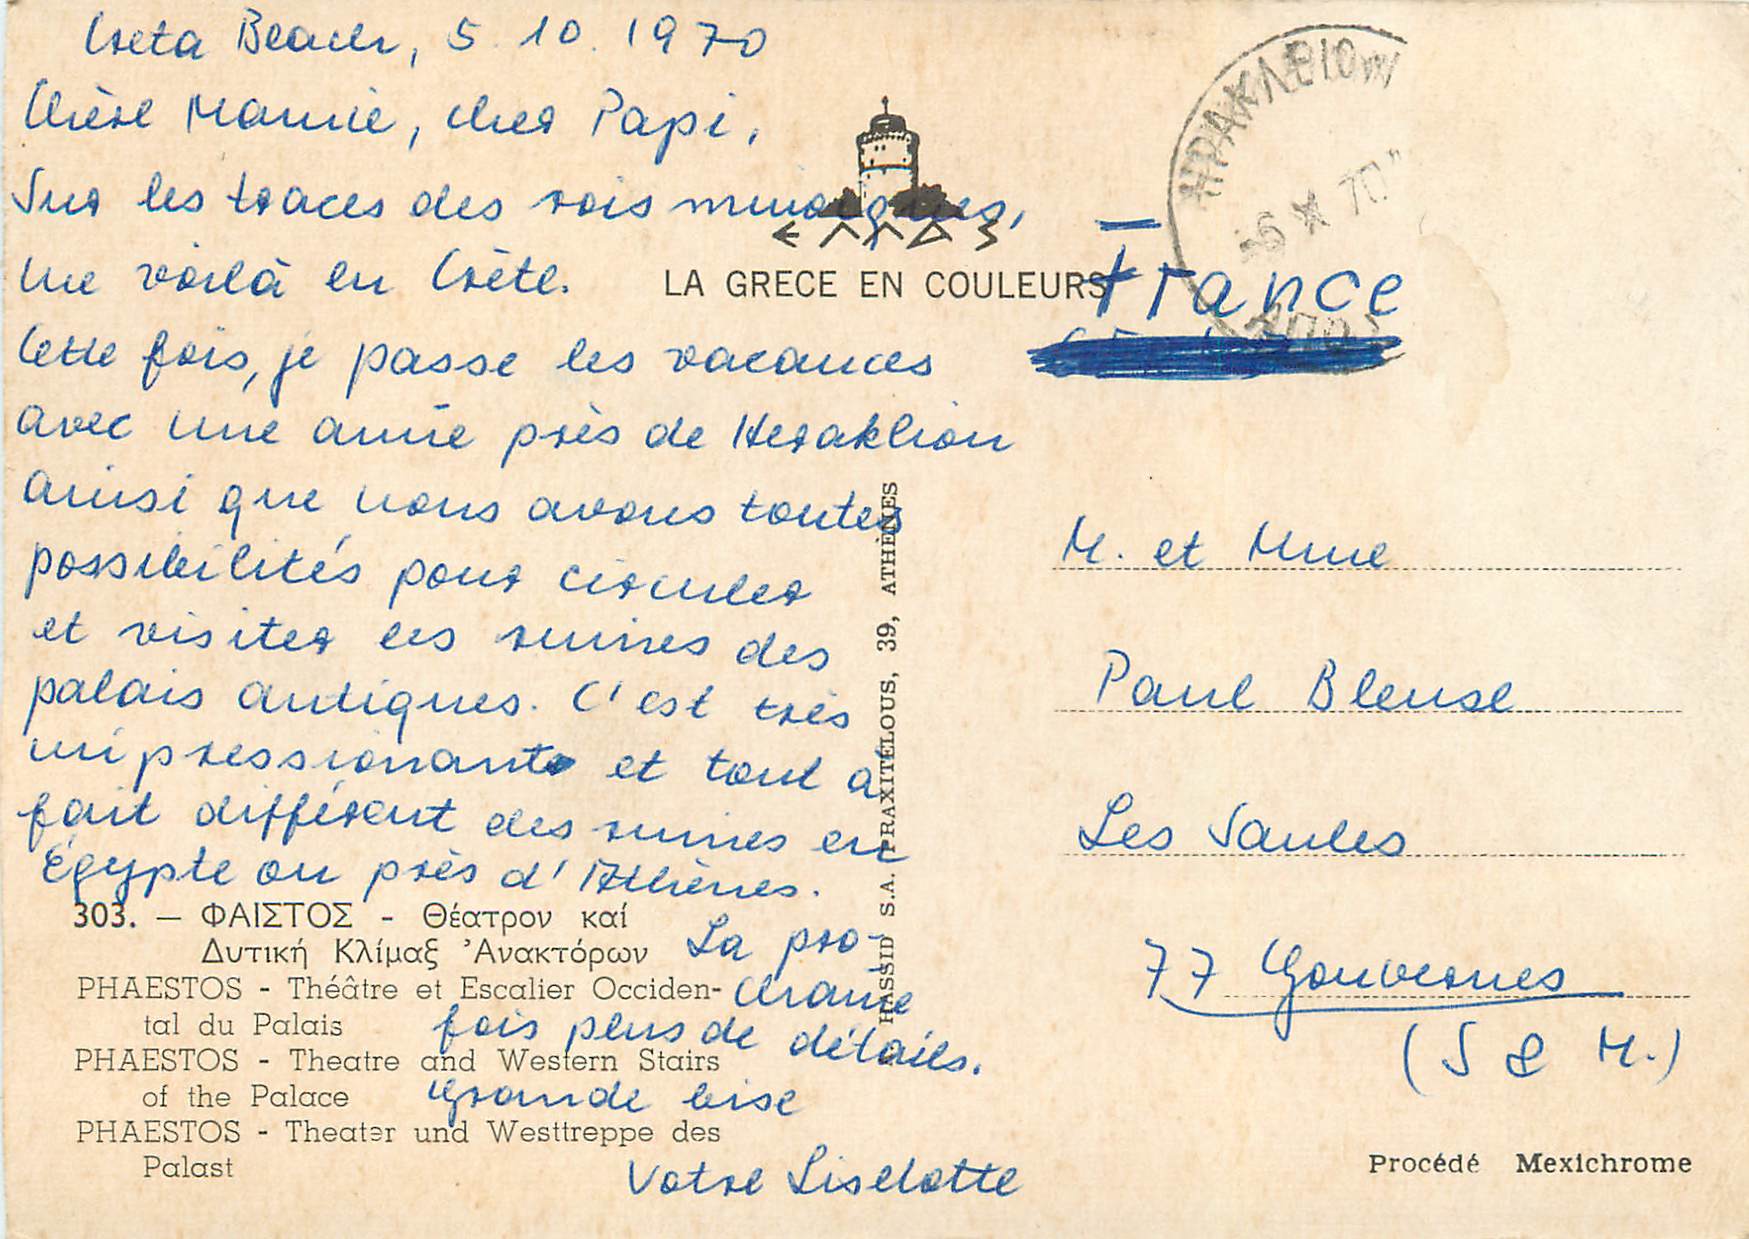 Creta Beach, 5.10.1970
Chère Mamie, cher Papi,
Sur les traces des rois minoiques,
me voilà en Crète.
Cette fois, je passe les vacances
avec une amie près de Heraklion
ainsi que nous avons toutes
possibilités pour circuler
et visiter les ruines des
palais antiques. C'est très
impressionant et tout à
fait différent des ruines en
Egypte ou près d'Athènes.
La pro-
chaine
fois plus de détails.
Grande bise
Votre Liselotte
303. — ΦΑΙΣΤΟΣ - Θέατρον καί
Δυτική Κλίμαξ Ἀνακτόρων
PHAESTOS - Théâtre et Escalier Occiden-
tal du Palais
PHAESTOS - Theatre and Western Stairs
of the Palace
PHAESTOS - Theater und Westtreppe des
Palast
ΕΛΛΑΣ
LA GRECE EN COULEURS
HASSID S.A. PRAXITELOUS, 39, ATHÈNES
ΗΡΑΚΛΕΙΟΝ
-6 X 70
France
M. et Mme
Paul Bleuse
Les Saules
77 Gouvernes
(S & M.)
Procédé Mexichrome